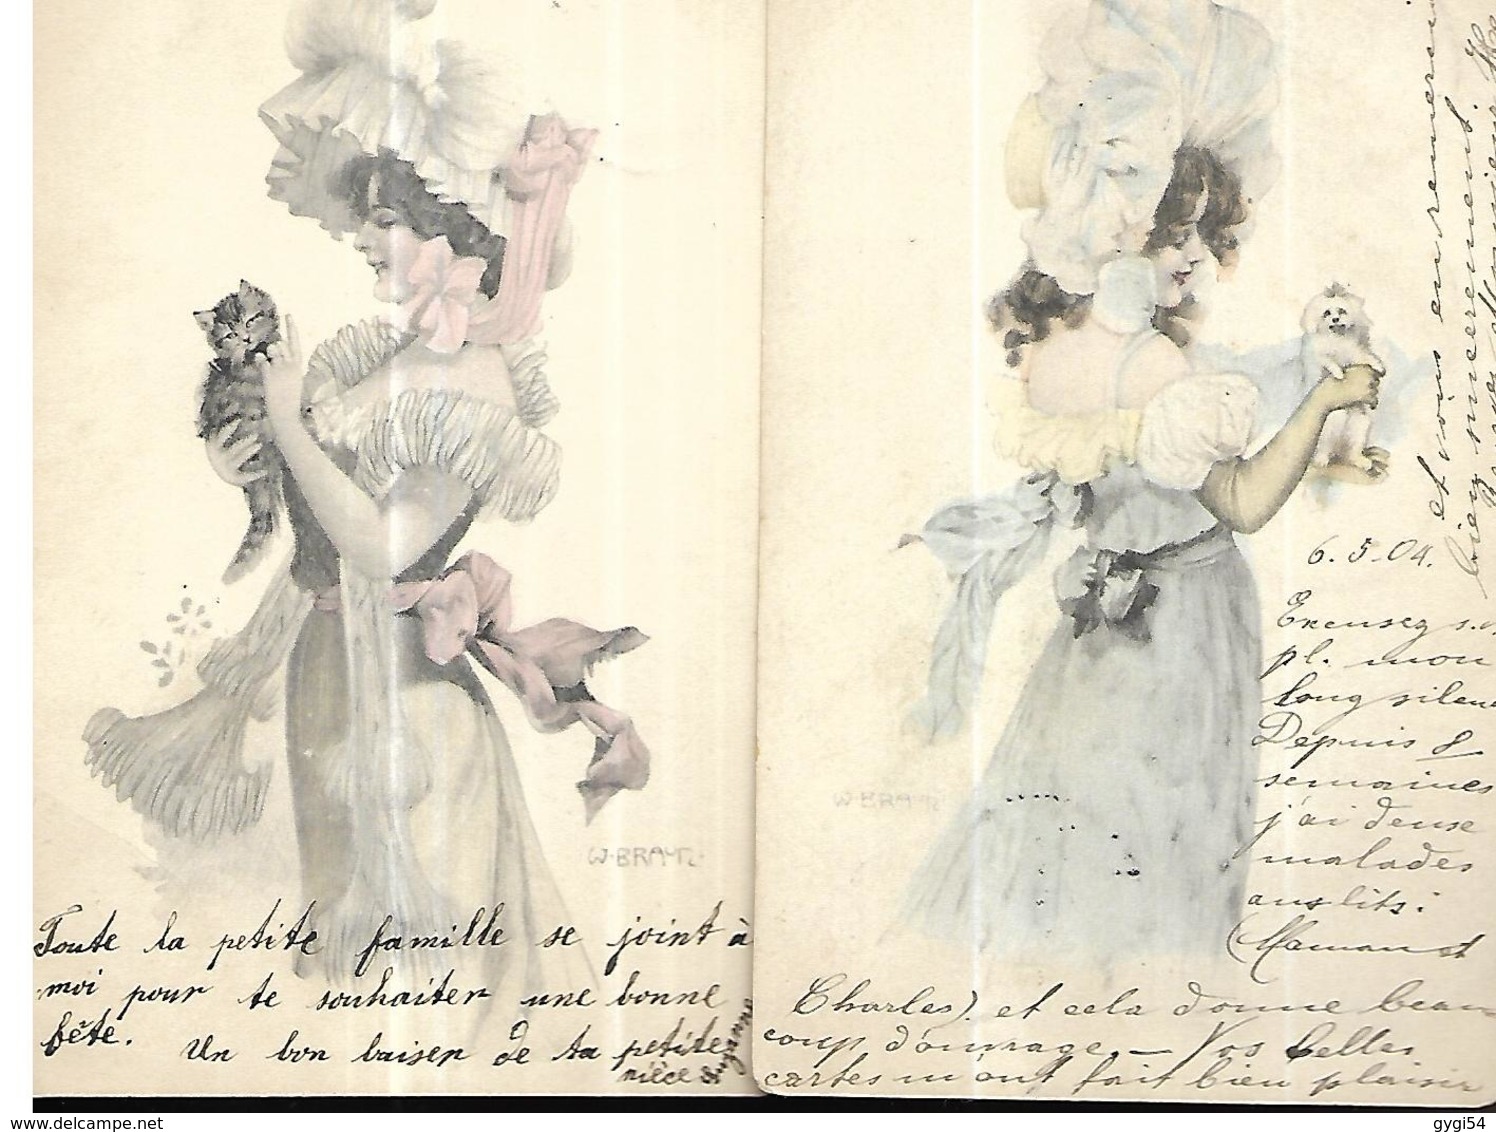 W·BRAUN·
Toute la petite famille se joint à
moi pour te souhaiter une bonne
fête.
Un bon baiser de ta petite
nièce Suzanne
W·BRAUN
6.5.04.
Excusez s.v.
pl. mon
long silence
Depuis 8
semaines
j'ai deuse
malades
aus lits:
(Maman et
Charles). et cela donne beau-
coup d'ouvrage. — Vos belles
cartes m'ont fait bien plaisir
et vous en remercie
bien sincerement.
delcampe.net
gygi54